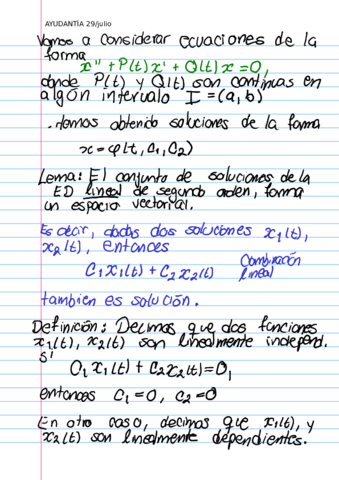 AYUDANTÍA 29/julio
Vamos a considerar ecuaciones de la
forma
x'' + P(t) x' + Q(t) x = 0,
donde P(t) y Q(t) son continuas en
algún intervalo I = (a, b)
. Hemos obtenido soluciones de la forma
x = φ(t, C₁, C₂)
Lema: El conjunto de soluciones de la
ED lineal de segundo orden, forma
un espacio vectorial.
Es decir, dadas dos soluciones x₁(t),
x₂(t), entonces
C₁x₁(t) + C₂x₂(t) Combinación
lineal
tambien es solución.
Definición: Decimos que dos funciones
x₁(t), x₂(t) son linealmente independ.
si
C₁x₁(t) + C₂x₂(t) = 0,
entonces C₁ = 0, C₂ = 0
En otro caso, decimos que x₁(t), y
x₂(t) son linealmente dependientes.